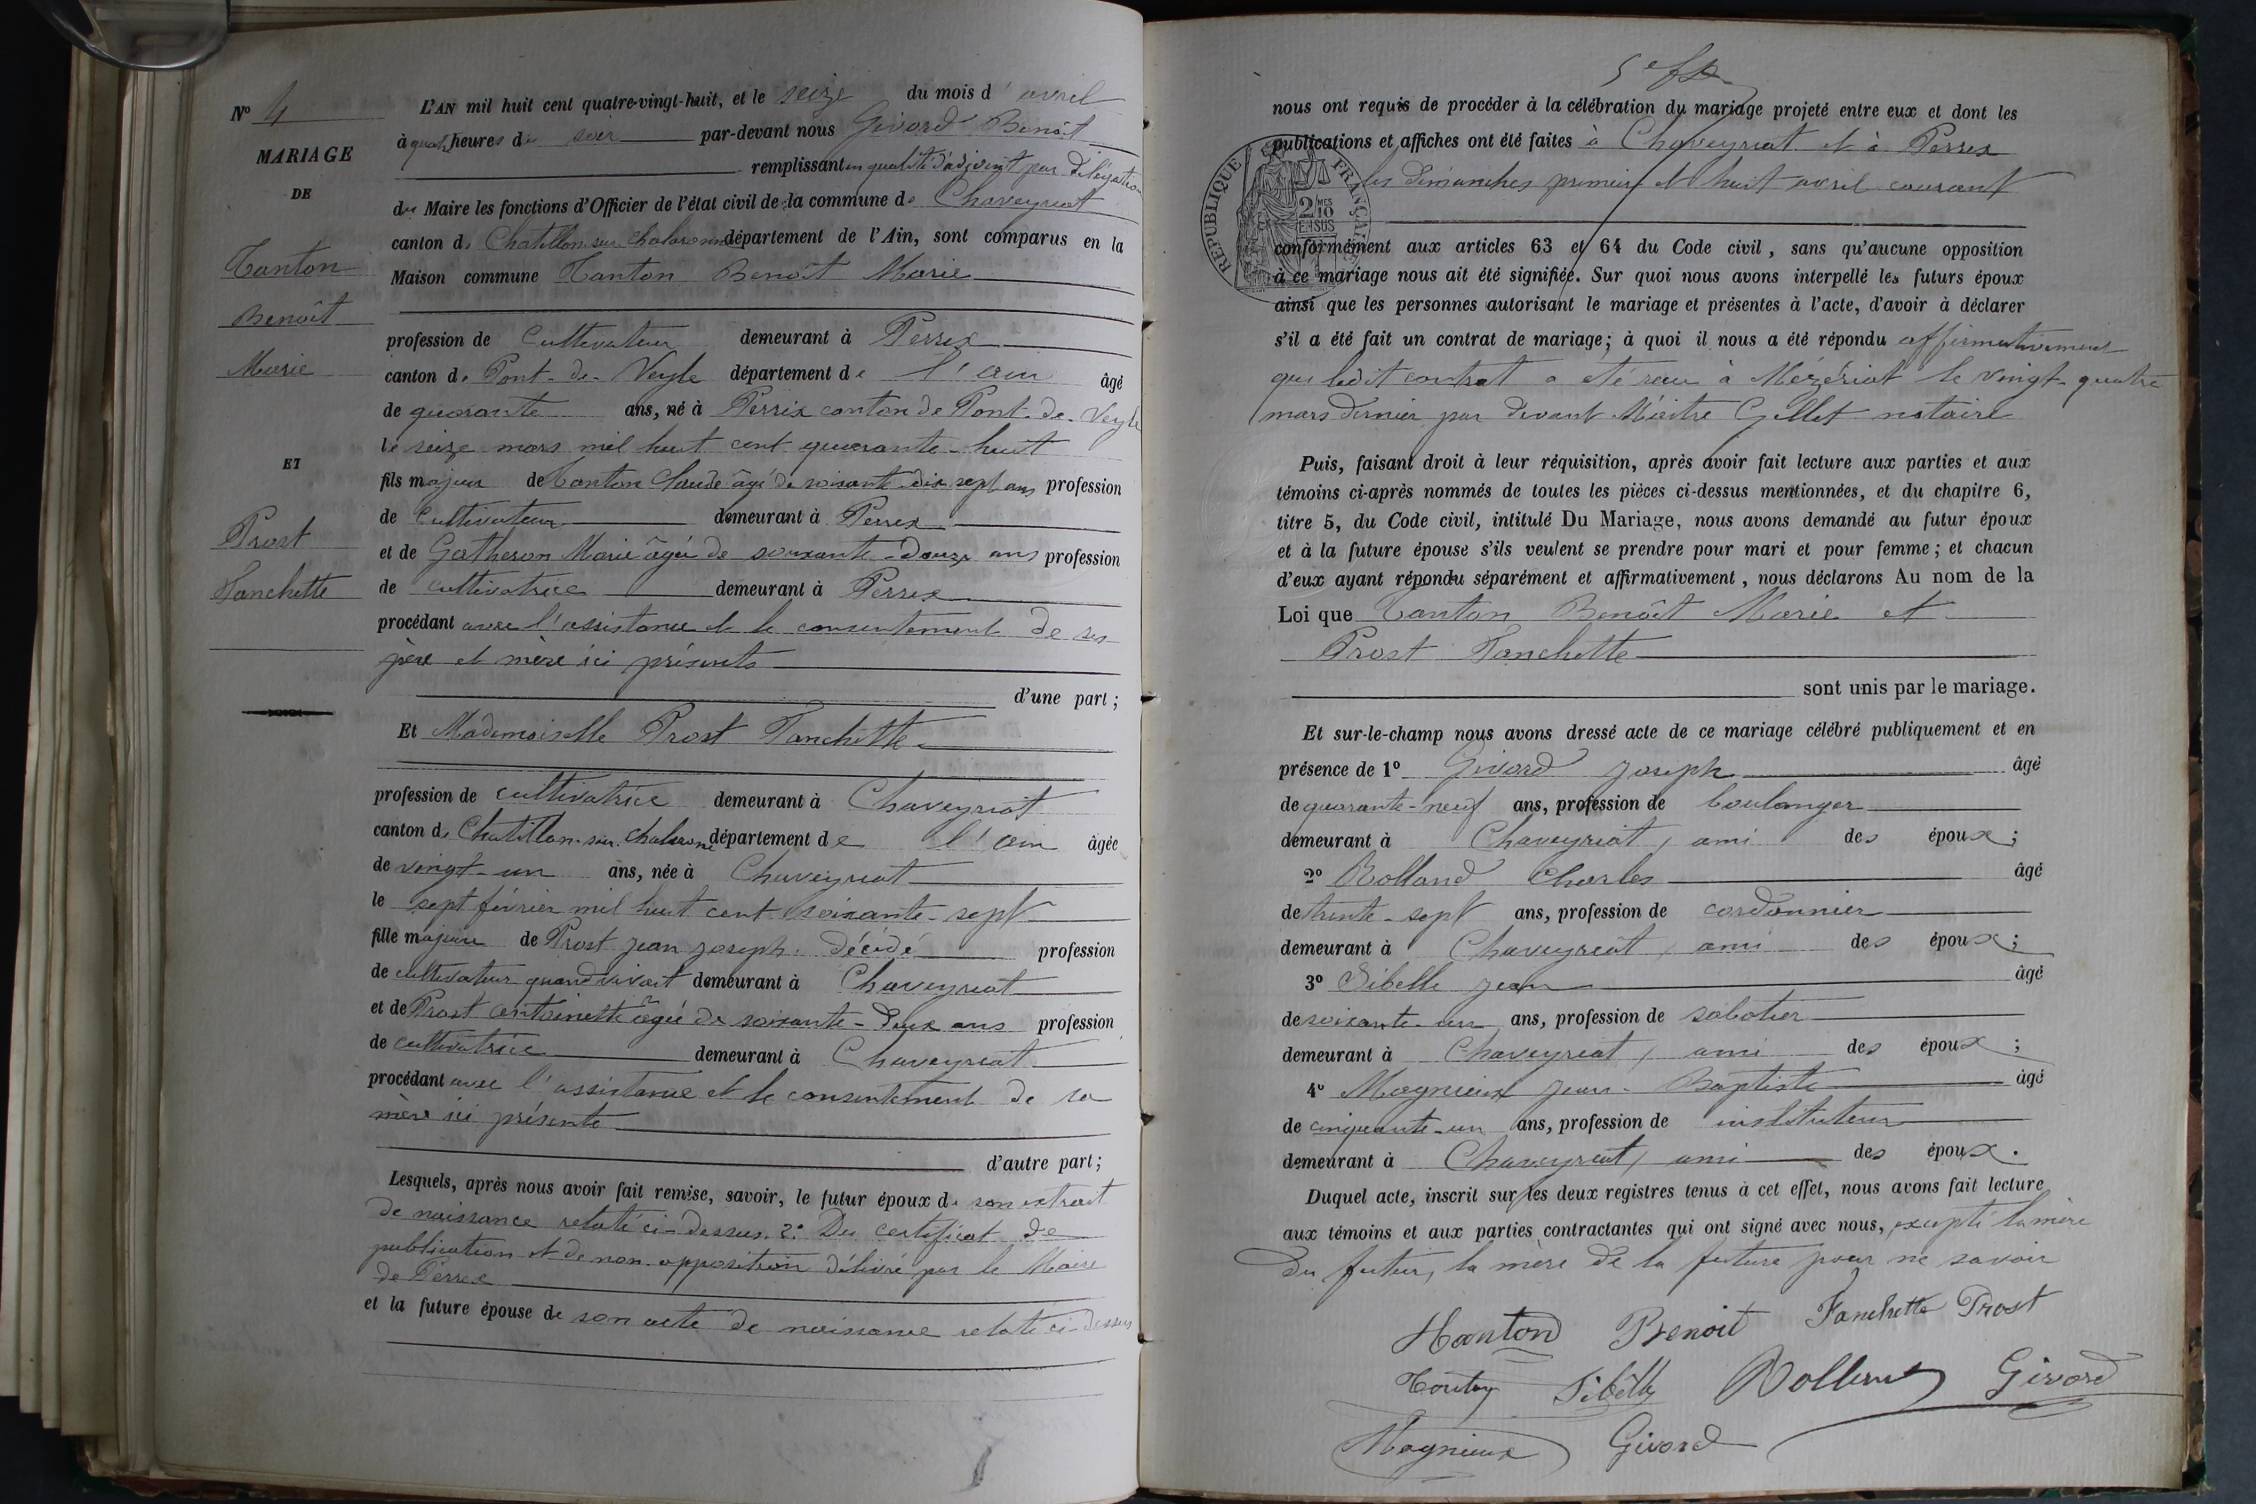 No 4
MARIAGE
DE
Tanton
Benoît
Marie
ET
Prost
Fanchette
L'AN mil huit cent quatre-vingt-huit, et le seize du mois d'avril
à quatre heures du soir par-devant nous Givord Benoît
remplissant en qualité d'adjoint par délégation
du Maire les fonctions d'Officier de l'état civil de la commune de Chaveyriat
canton de Chatillon sur Chalaronne département de l'Ain, sont comparus en la
Maison commune Tanton Benoît Marie
profession de Cultivateur demeurant à Perrex
canton de Pont-de-Veyle département de l'ain âgé
de quarante ans, né à Perrex canton de Pont-de-Veyle
le seize mars mil huit cent quarante-huit
fils majeur de Tanton Claude âgé de soixante-dix sept ans profession
de Cultivateur demeurant à Perrex
et de Gatheron Marie âgée de soixante-douze ans profession
de cultivatrice demeurant à Perrex
procédant avec l'assistance et le consentement de ses
père et mère ici présents
d'une part;
Et Mademoiselle Prost Fanchette
profession de cultivatrice demeurant à Chaveyriat
canton de Chatillon-sur-Chalaronne département de l'ain âgée
de vingt-un ans, née à Chaveyriat
le sept février mil huit cent soixante-sept
fille majeure de Prost Jean Joseph décédé profession
de cultivateur quand vivait demeurant à Chaveyriat
et de Prost Antoinette âgée de soixante-deux ans profession
de cultivatrice demeurant à Chaveyriat
procédant avec l'assistance et le consentement de sa
mère ici présente
d'autre part;
Lesquels, après nous avoir fait remise, savoir, le futur époux de son extrait
de naissance relaté ci-dessus. 2° Du certificat de
publication et de non opposition délivré par le Maire
de Perrex
et la future épouse de son acte de naissance relaté ci-dessus
nous ont requis de procéder à la célébration du mariage projeté entre eux et dont les
publications et affiches ont été faites à Chaveyriat et à Perrex
les dimanches premier et huit avril courant
RÉPUBLIQUE FRANÇAISE
2/10 EN SUS
conformément aux articles 63 et 64 du Code civil, sans qu'aucune opposition
à ce mariage nous ait été signifiée. Sur quoi nous avons interpellé les futurs époux
ainsi que les personnes autorisant le mariage et présentes à l'acte, d'avoir à déclarer
s'il a été fait un contrat de mariage; à quoi il nous a été répondu affirmativement
que ledit contrat a été reçu à Mézériat le vingt-quatre
mars dernier par devant Maître Gillet notaire
Puis, faisant droit à leur réquisition, après avoir fait lecture aux parties et aux
témoins ci-après nommés de toutes les pièces ci-dessus mentionnées, et du chapitre 6,
titre 5, du Code civil, intitulé Du Mariage, nous avons demandé au futur époux
et à la future épouse s'ils veulent se prendre pour mari et pour femme; et chacun
d'eux ayant répondu séparément et affirmativement, nous déclarons Au nom de la
Loi que Tanton Benoît Marie et
Prost Fanchette
sont unis par le mariage.
Et sur-le-champ nous avons dressé acte de ce mariage célébré publiquement et en
présence de 1° Givord Joseph âgé
de quarante-neuf ans, profession de boulanger
demeurant à Chaveyriat, ami des époux;
2° Rolland Charles âgé
de trente-sept ans, profession de cordonnier
demeurant à Chaveyriat, ami des époux;
3° Sibelle Jean âgé
de soixante-un ans, profession de sabotier
demeurant à Chaveyriat, ami des époux;
4° Magnieux Jean-Baptiste âgé
de cinquante-un ans, profession de instituteur
demeurant à Chaveyriat, ami des époux.
Duquel acte, inscrit sur les deux registres tenus à cet effet, nous avons fait lecture
aux témoins et aux parties contractantes qui ont signé avec nous, excepté la mère
du futur, la mère de la future pour ne savoir
Tanton Benoit Fanchette Prost
Sibelle Givord
Magnieux Givord